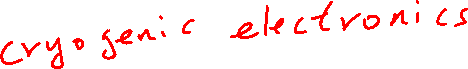 cryogenic electronics